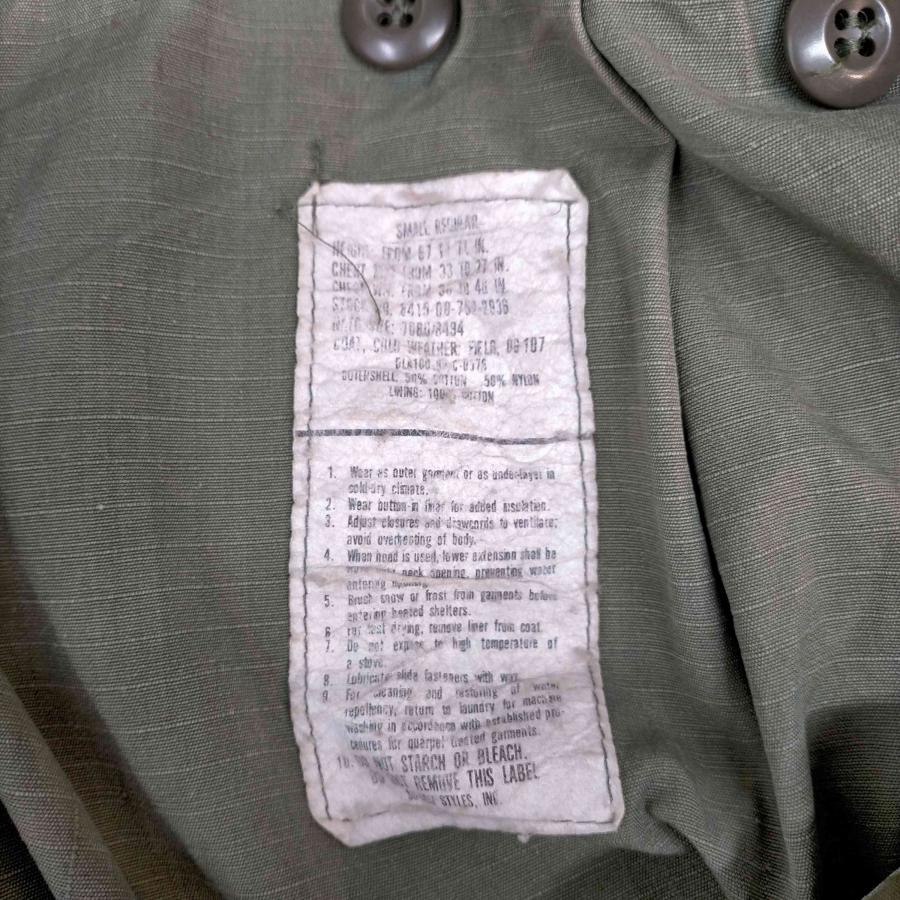 SMALL REGULAR
FROM 67 71 IN.
CHEST FROM 33 TO 37 IN.
FROM IN
STOCK NO. 8415-00-
7080/9494
COAT, COLD WEATHER: FIELD, OG 107
DLA100
OUTERSHELL: 50% COTTON 50% NYLON
LINING: 100% COTTON
1. Wear as outer garment or as under-layer in
cold-dry climate.
2. Wear button-in liner for added insulation.
3. Adjust closures and drawcords to ventilate;
avoid overheating of body.
4. When hood is used, lower extension shall be
neck opening, preventing water
entering
5. Brush snow or frost from garments before
entering heated shelters.
6. drying, remove liner from coat.
7. Do not expose to high temperature of
a stove.
8. Lubricate slide fasteners with wax.
9. For cleaning and restoring of water
repellency, return to laundry for machine
washing in accordance with established pro-
cedures for quarpel treated garments.
10. DO NOT STARCH OR BLEACH.
DO NOT REMOVE THIS LABEL
STYLES, INC.